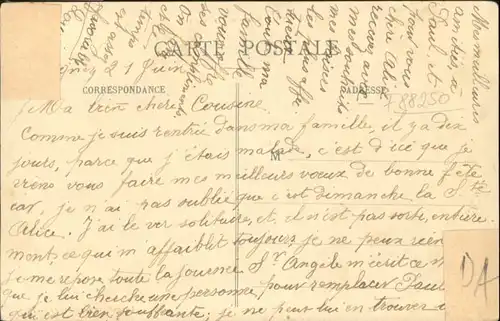 CARTE POSTALE
CORRESPONDANCE
ADRESSE
88250
21 Juin
Ma bien chère Cousine
Comme je suis rentrée dans ma famille, il y a dix
jours, parce que j'étais malade, c'est d'ici que je
viens vous faire mes meilleurs vœux de bonne fête
car, je n'ai pas oublié que c'est dimanche la Ste
Alice. J'ai le ver solitaire, et, il n'est pas sorti, entière-
ment, ce qui m'affaiblit toujours je ne peux rien
je me repose toute la journée Sr Angèle m'écrit ce
que je lui cherche une personne, pour remplacer Paul
qui est bien souffrante; je ne peut lui en trouver
M
DA
Mes meilleures
amitiés à
Paul, et
pour vous
chère Alice
recevez avec
mes souhaits
mes baisers
les plus affec
tueux
Cousine
famille